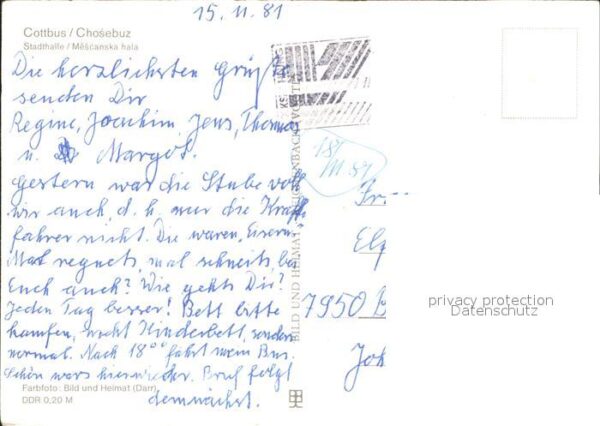 15.11.81
Cottbus / Chośebuz
Stadthalle / Měšćanska hala
Die herzlichsten Grüße
senden Dir
Regine, Joachim, Jens, Thomas
u. Margot.
Gestern war die Stube voll
wir auch, d. h. nur die Kraft
fahrer nicht. Die waren
Mal regnets, mal schneits, bei
Euch auch? Wie gehts Dir?
Jeden Tag besser! Bett bitte
kaufen, nicht Kinderbett, sondern
normal. Nach 18°° fährt mein Bus.
Schön wars hier wieder. Brief folgt
demnächst.
Farbfoto: Bild und Heimat (Darr)
DDR 0,20 M
BILD UND HEIMAT REICHENBACH (VOGTL)
181
11 81
Fr.
7950 B
Joh
privacy protection
Datenschutz